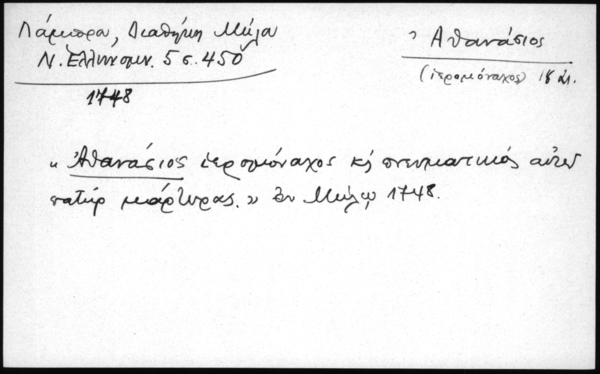 Λάμπρου, Διαθήκη Μήλου
Ν. Ἑλληνομν. 5 σ. 450
1748
Ἀθανάσιος
(ἱερομόναχος) 18 αἰ.
« Ἀθανάσιος ἱερομόναχος κὴ πνευματικός αὐτῶν
πατὴρ μάρτυρας. » Ἐν Μήλῳ 1748.